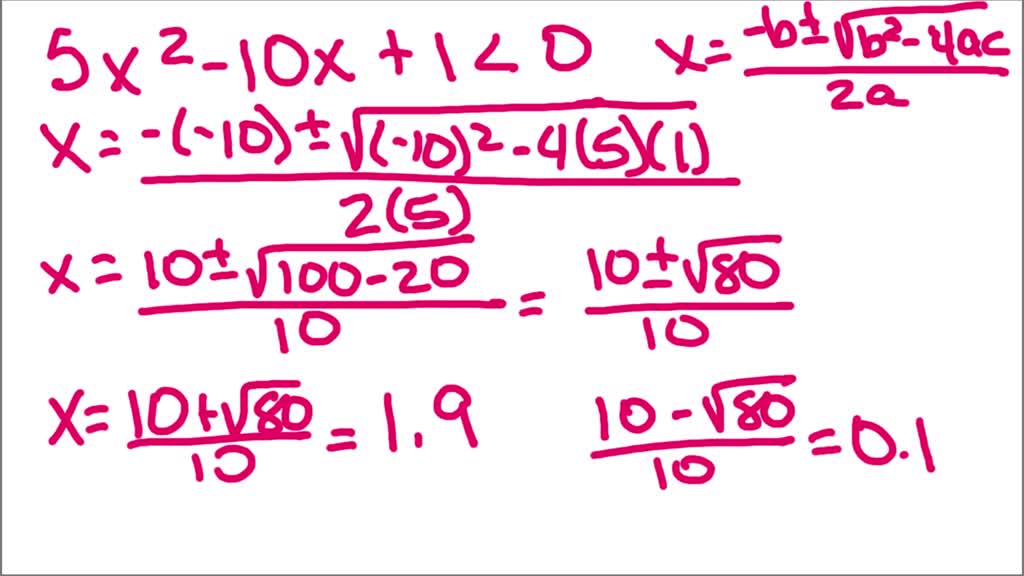 5x² - 10x + 1 < 0    x = (-b ± √(b² - 4ac)) / 2a
x = (-(-10) ± √((-10)² - 4(5)(1))) / 2(5)
x = (10 ± √(100 - 20)) / 10 = (10 ± √80) / 10
x = (10 + √80) / 10 = 1.9    (10 - √80) / 10 = 0.1